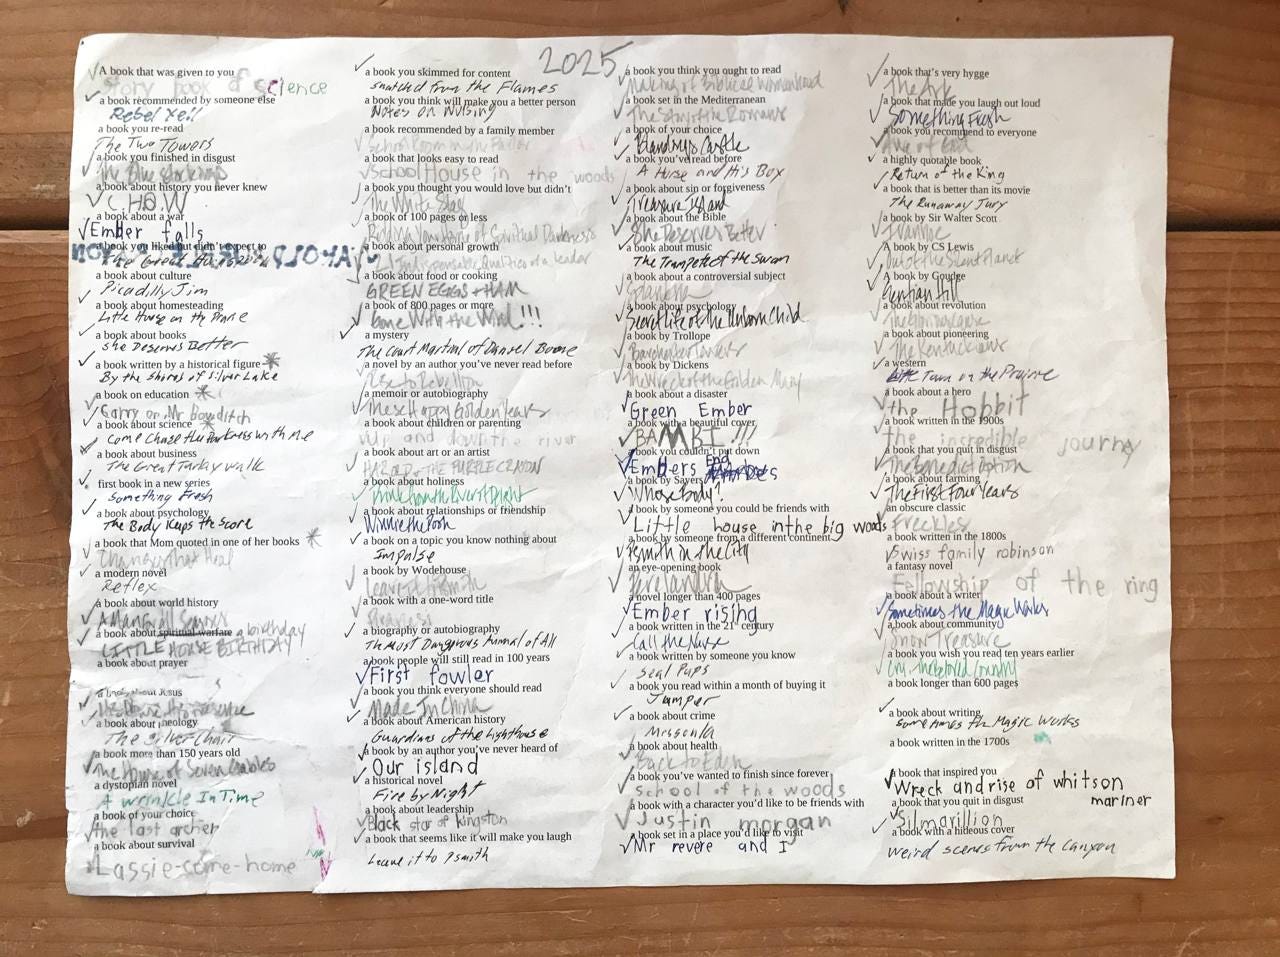 2025
A book that was given to you
story book of science
a book recommended by someone else
Rebel Yell
a book you re-read
The Two Towers
a book you finished in disgust
The Blue
a book about history you never knew
C.H.O.W
a book about a war
Ember falls
a book you liked but didn't expect to
The Great
a book about culture
Picadilly Jim
a book about homesteading
Little House on the Prairie
a book about books
She Deserves Better
a book written by a historical figure *
By the Shores of Silver Lake
a book on education *
Carry on Mr bowditch
a book about science *
Come Chase the Darkness with me
a book about business
The Great Turkey Walk
first book in a new series
Something Fresh
a book about psychology
The Body Keeps the Score
a book that Mom quoted in one of her books *
Changes that Heal
a modern novel
Reflex
a book about world history
A Man
a book about spiritual warfare a birthday
LITTLE HOUSE BIRTHDAY
a book about prayer
a book about Jesus
a book about theology
The Silver Chair
a book more than 150 years old
The House of Seven Gables
a dystopian novel
A wrinkle In Time
a book of your choice
the last archer
a book about survival
Lassie-come-home
a book you skimmed for content
snatched from the Flames
a book you think will make you a better person
Notes on Nursing
a book recommended by a family member
School Room in the Parlor
a book that looks easy to read
School House in the woods
a book you thought you would love but didn't
The White Stag
a book of 100 pages or less
of Spiritual Darkness
a book about personal growth
21 Indispensable Qualities of a leader
a book about food or cooking
GREEN EGGS + HAM
a book of 800 pages or more
Gone With the Wind!!!
a mystery
The Court Martial of Daniel Boone
a novel by an author you've never read before
Rise to Rebellion
a memoir or autobiography
These Happy Golden Years
a book about children or parenting
Up and down the river
a book about art or an artist
HAROLD + THE PURPLE CRAYON
a book about holiness
Drink from the River of Delight
a book about relationships or friendship
Winnie the Pooh
a book on a topic you know nothing about
Impulse
a book by Wodehouse
Leave it to Psmith
a book with a one-word title
a biography or autobiography
The Most Dangerous Animal of All
a book people will still read in 100 years
First fowler
a book you think everyone should read
Made In China
a book about American history
Guardians of the Lighthouse
a book by an author you've never heard of
Our island
a historical novel
Fire by Night
a book about leadership
Black star of kingston
a book that seems like it will make you laugh
Leave it to Psmith
a book you think you ought to read
Making of Biblical Womanhood
a book set in the Mediterranean
The Story of the Romans
a book of your choice
Blandings Castle
a book you've read before
A Horse and His Boy
a book about sin or forgiveness
Treasure Island
a book about the Bible
She Deserves Better
a book about music
The Trumpet of the Swan
a book about a controversial subject
a book about psychology
Secret life of the Unborn Child
a book by Trollope
Barchester Towers
a book by Dickens
The Wreck of the Golden Mary
a book about a disaster
Green Ember
a book with a beautiful cover
BAMBI!!!
a book you couldn't put down
Embers End
a book by Sayers
Whose body?
a book by someone you could be friends with
Little house in the big woods
a book by someone from a different continent
Psmith in the City
an eye-opening book
Perelandra
a novel longer than 400 pages
Ember rising
a book written in the 21st century
Call the Nurse
a book written by someone you know
Seal Pups
a book you read within a month of buying it
Jumper
a book about crime
Missoula
a book about health
Back to Eden
a book you've wanted to finish since forever
School of the woods
a book with a character you'd like to be friends with
Justin morgan
a book set in a place you'd like to visit
Mr revere and I
a book that's very hygge
The Ark
a book that made you laugh out loud
Something Fresh
a book you recommend to everyone
a highly quotable book
Return of the King
a book that is better than its movie
The Runaway Jury
a book by Sir Walter Scott
Ivanhoe
A book by CS Lewis
Out of the Silent Planet
A book by Goudge
Gentian Hill
a book about revolution
a book about pioneering
The Kentuckians
a western
Little Town on the Prairie
a book about a hero
the Hobbit
a book written in the 1900s
the incredible journey
a book that you quit in disgust
The Benedict Option
a book about farming
The First Four Years
an obscure classic
Freckles
a book written in the 1800s
Swiss family robinson
a fantasy novel
Fellowship of the ring
a book about a writer
Sometimes the Magic Works
a book about community
Snow Treasure
a book you wish you read ten years earlier
Cry, The Beloved Country
a book longer than 600 pages
a book about writing
Sometimes the Magic Works
a book written in the 1700s
A book that inspired you
Wreck and rise of whitson mariner
a book that you quit in disgust
Silmarillion
a book with a hideous cover
Weird scenes from the Canyon